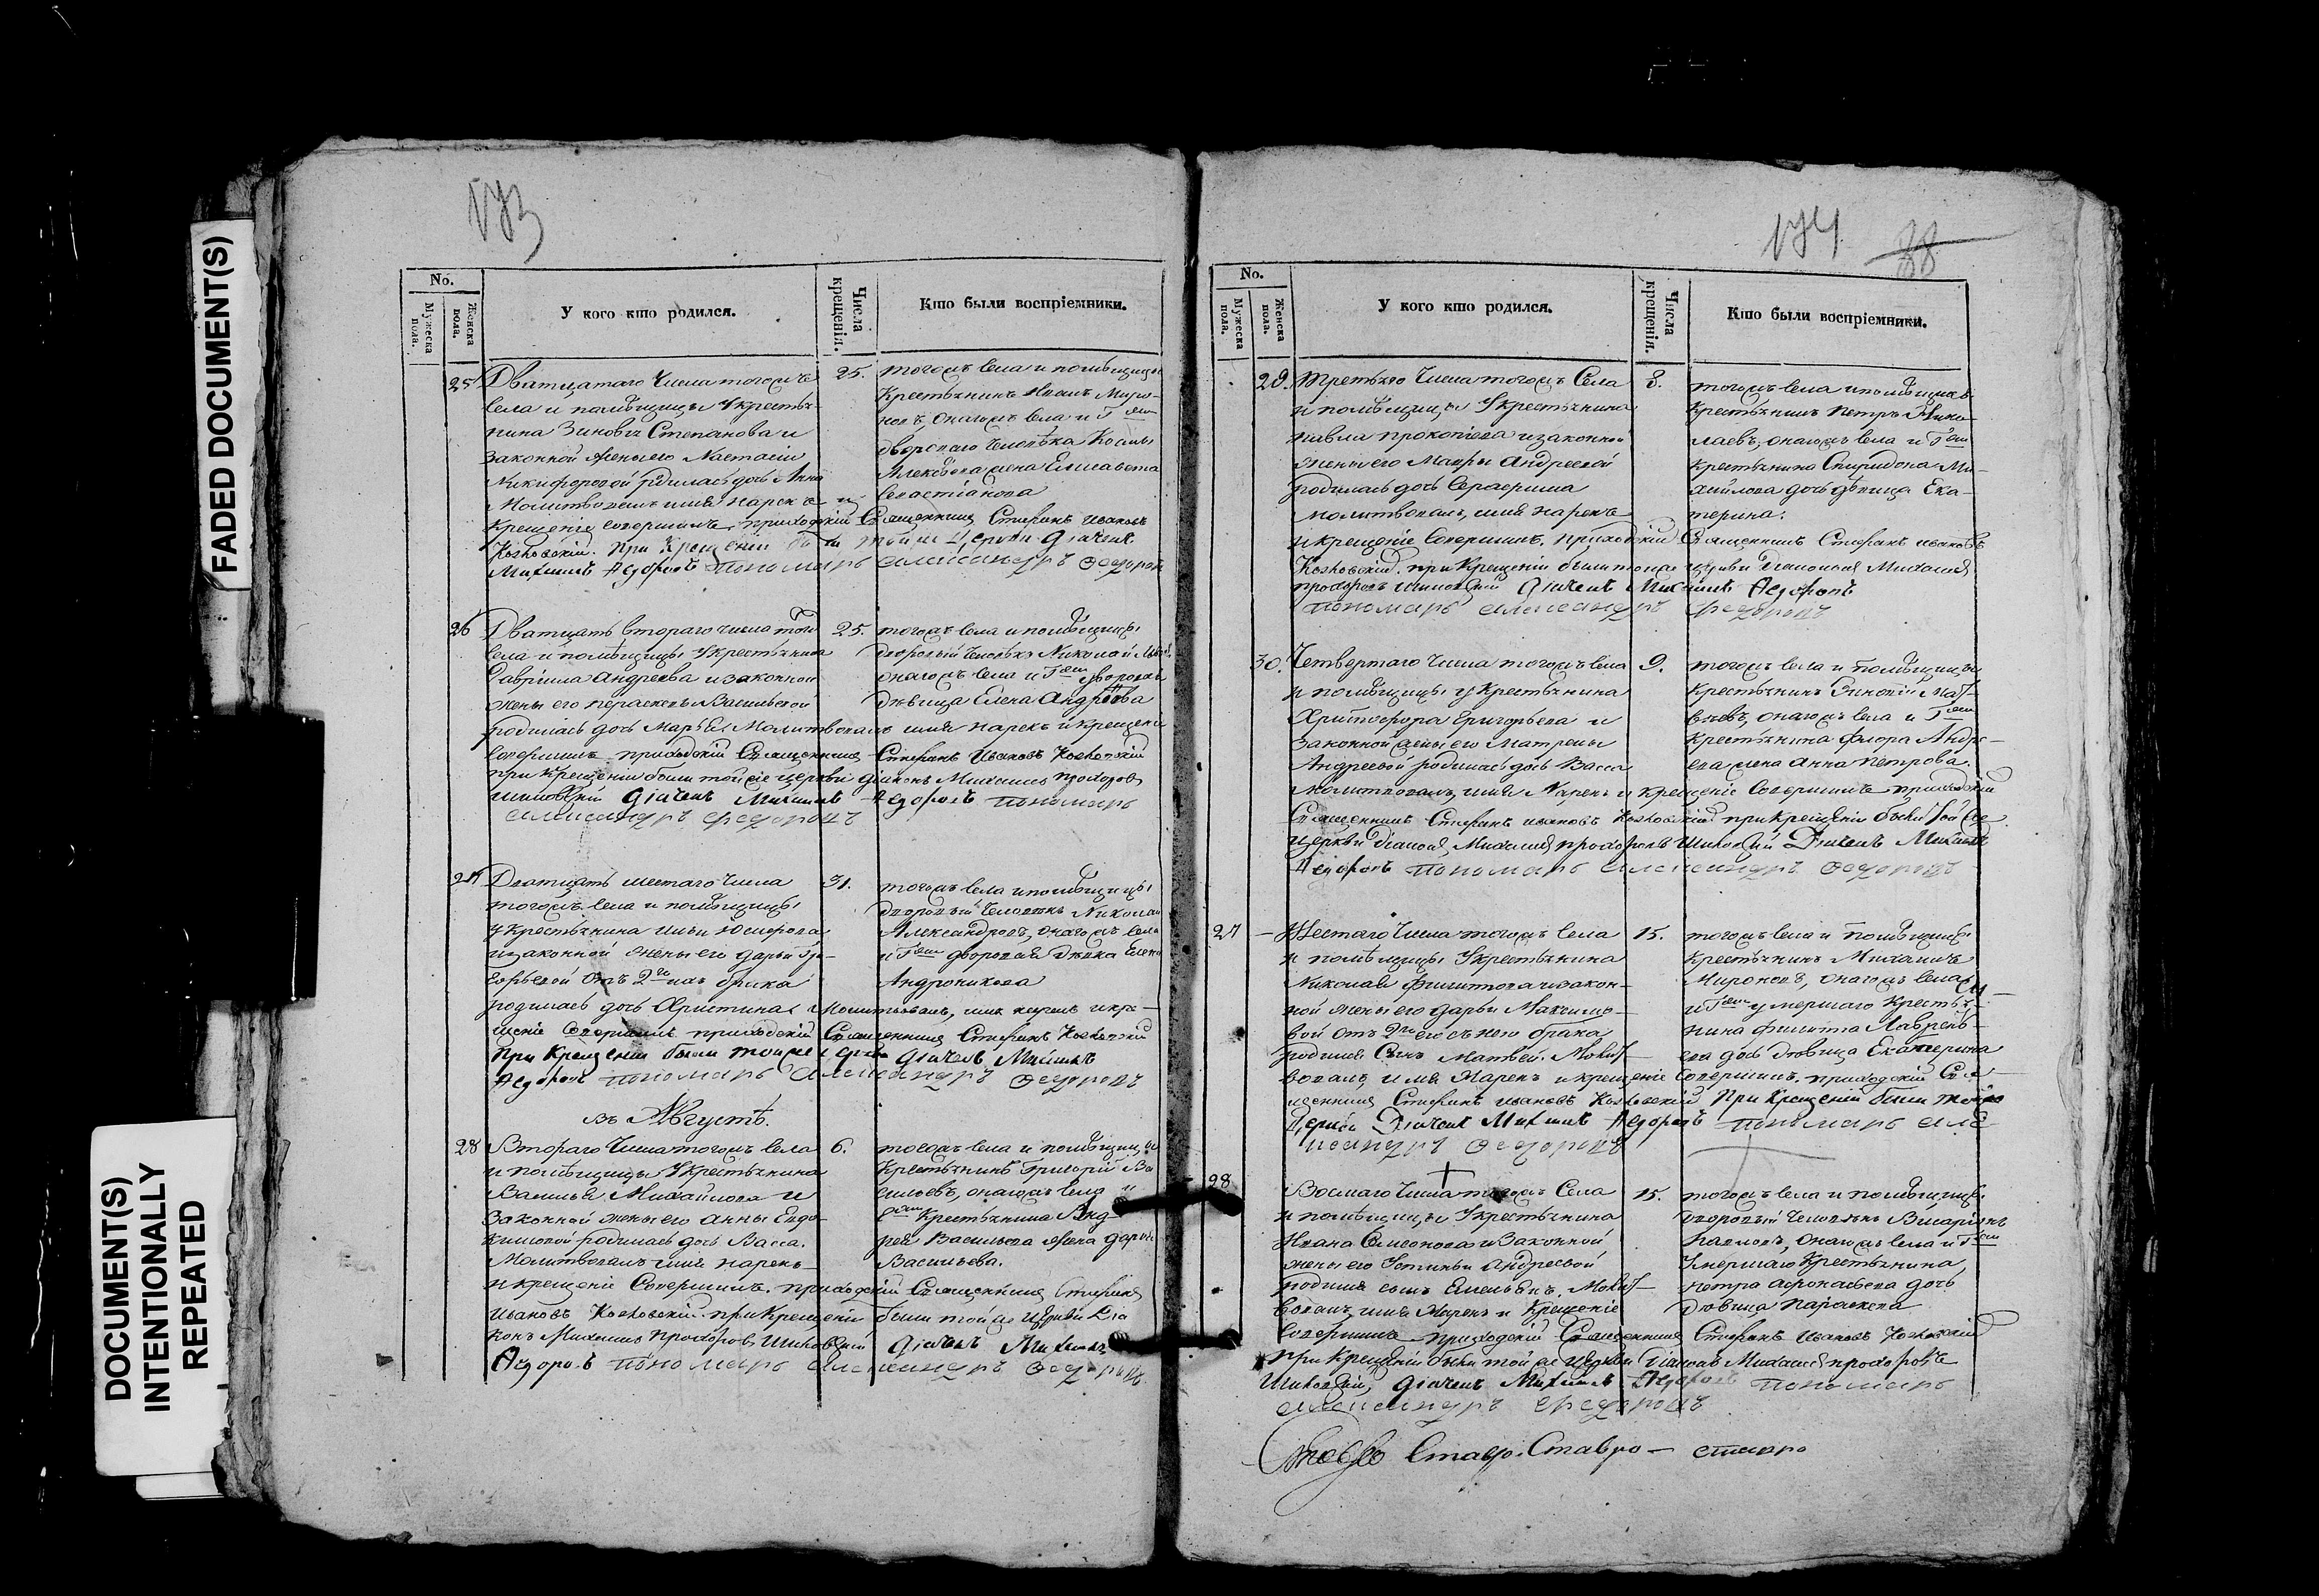 FADED DOCUMENT(S)
DOCUMENT(S)
INTENTIONALLY
REPEATED
173
No.
Мужеска пола.
Женска пола.
У кого кто родился.
Числа крещенія.
Кто были воспріемники.
25
Дватцатаго Числа тогожъ
села и помѣщицы У крестья-
нина Зиновія Степанова и
законной жены его Настасіи
Никифоровой родилась дочь Анна
Молитвовалъ имя нарекъ и
крещеніе совершилъ приходскій Священникъ Стефанъ Ивановъ
Козловскій. При Крещеніи были тойже Церкви Дьячекъ
Михаилъ Федоровъ пономарь Александръ Федоровъ
25.
тогожъ села и помѣщицы
Крестьянинъ Иванъ Миро-
новъ, онагожъ села и Г
двороваго человѣка Космы
Алексѣева жена Елисавета
Севастіанова
26
Дватцать втораго числа тогожъ
села и помѣщицы У крестьянина
Гавріила Андреева и законной
жены его Параскевы Васильевой
родилась дочь Марья Молитвовалъ имя нарекъ и крещеніе
совершилъ приходскій Священникъ Стефанъ Ивановъ Козловскій
при крещеніи были тойже церкви діаконъ Михаилъ Прохоровъ
Шиловскій Дьячекъ Михаилъ Федоровъ пономарь
Александръ Федоровъ
25.
тогожъ села и помѣщицы
дворовый человѣкъ Николай
онагожъ села и Г дворовая
дѣвица Елена Андреева
27
Дватцать шестаго Числа
тогожъ села и помѣщицы
У крестьянина Ильи Юсифова
и законной жены его Дарьи Гри-
горьевой отъ 2го ихъ брака
родилась дочь Христина Молитвовалъ, имя нарекъ и кре-
щеніе совершилъ приходскій Священникъ Стефанъ Козловскій
При Крещеніи были тойже церкви Дьячекъ Михаилъ
Федоровъ пономарь Александръ Федоровъ
31.
тогожъ села и помѣщицы
дворовый человѣкъ Николай
Александровъ, онагожъ села
и Г дворовая дѣвка Елена
Андроникова
въ Августѣ.
28
Втораго Числа тогожъ села
и помѣщицы У крестьянина
Василья Михайлова и
законной жены его Анны Евдо-
кимовой родилась дочь Васса.
Молитвовалъ имя нарекъ
и крещеніе Совершилъ приходскій Священникъ Стефанъ
Ивановъ Козловскій при Крещеніи были тойже церкви Діа
конъ Михаилъ Прохоровъ Шиловскій Дьячекъ Михаилъ
Федоровъ пономарь Александръ Федоровъ
6.
тогожъ села и помѣщицы
Крестьянинъ Григорій Ва
сильевъ, онагожъ села и
Г Крестьянина Анд-
рея Васильева жена Дарья
Васильева.
174
88
No.
Мужеска пола.
Женска пола.
У кого кто родился.
Числа крещенія.
Кто были воспріемники.
29.
Третьяго Числа тогожъ Села
и помѣщицы У крестьянина
Павла Прокопіева и законной
жены его Мавры Андреевой
родилась дочь Серафима
молитвовалъ, имя нарекъ
и крещеніе Совершилъ. приходскій Священникъ Стефанъ Ивановъ
Козловскій. при Крещеніи были тойже церкви Діаконъ Михаилъ
Прохоровъ Шиловскій Дьячекъ Михаилъ Федоровъ
пономарь Александръ Федоровъ
8.
тогожъ села и помѣщицы
Крестьянинъ Петръ Нико-
лаевъ, онагожъ села и Г
Крестьянина Спиридона Ми-
хайлова дочь дѣвица Ека-
терина.
30.
Четвертаго Числа тогожъ села
и помѣщицы У Крестьянина
Христофора Григорьева и
законной жены его Матрены
Андреевой родилась дочь Васса
молитвовалъ, имя Нарекъ и крещеніе Совершилъ приходскій
Священникъ Стефанъ Ивановъ Козловскій при Крещеніи были тойже
церкви діаконъ Михаилъ Прохоровъ Шиловскій Дьячекъ Михаилъ
Федоровъ пономарь Александръ Федоровъ
9.
тогожъ села и помѣщицы
Крестьянинъ Зиновій Мат-
вѣевъ, онагожъ села и Г
Крестьянина Флора Андре-
ева жена Анна Петрова.
27
Шестаго Числа тогожъ Села
и помѣщицы У Крестьянина
Николая Филиппова и закон-
ной жены его Дарьи Максимо-
вой отъ 2го его съ нею брака
родился Сынъ Матвей. Молит-
вовалъ имя Нарекъ и крещеніе Совершилъ. приходскій Свя-
щенникъ Стефанъ Ивановъ Козловскій При Крещеніи были тойже
Церкви Дьячекъ Михаилъ Федоровъ пономарь Алек
сандръ Федоровъ
15.
тогожъ села и помѣщицы
Крестьянинъ Михаилъ
Мироновъ, онагожъ села
и Г умершаго Крестья-
нина Филиппа Лаврень-
ева дочь дѣвица Екатерина
28
Восмаго Числа тогожъ Села
и помѣщицы У крестьянина
Ивана Симеонова и Законной
жены его Устиньи Андреевой
родился сынъ Емельянъ. Молит-
вовалъ, имя Нарекъ и Крещеніе
Совершилъ приходскій Священникъ Стефанъ Ивановъ Козловскій
при Крещеніи были тойже церкви Діаконъ Михаилъ Прохоровъ
Шиловскій, Дьячекъ Михаилъ Федоровъ пономарь
Александръ Федоровъ
15.
тогожъ села и помѣщицы
дворовый человѣкъ Висаріонъ
Павловъ, онагожъ села и Г
Умершаго Крестьянина
Петра Афонасьева дочь
дѣвица Параскева
Ставро-Ставро-